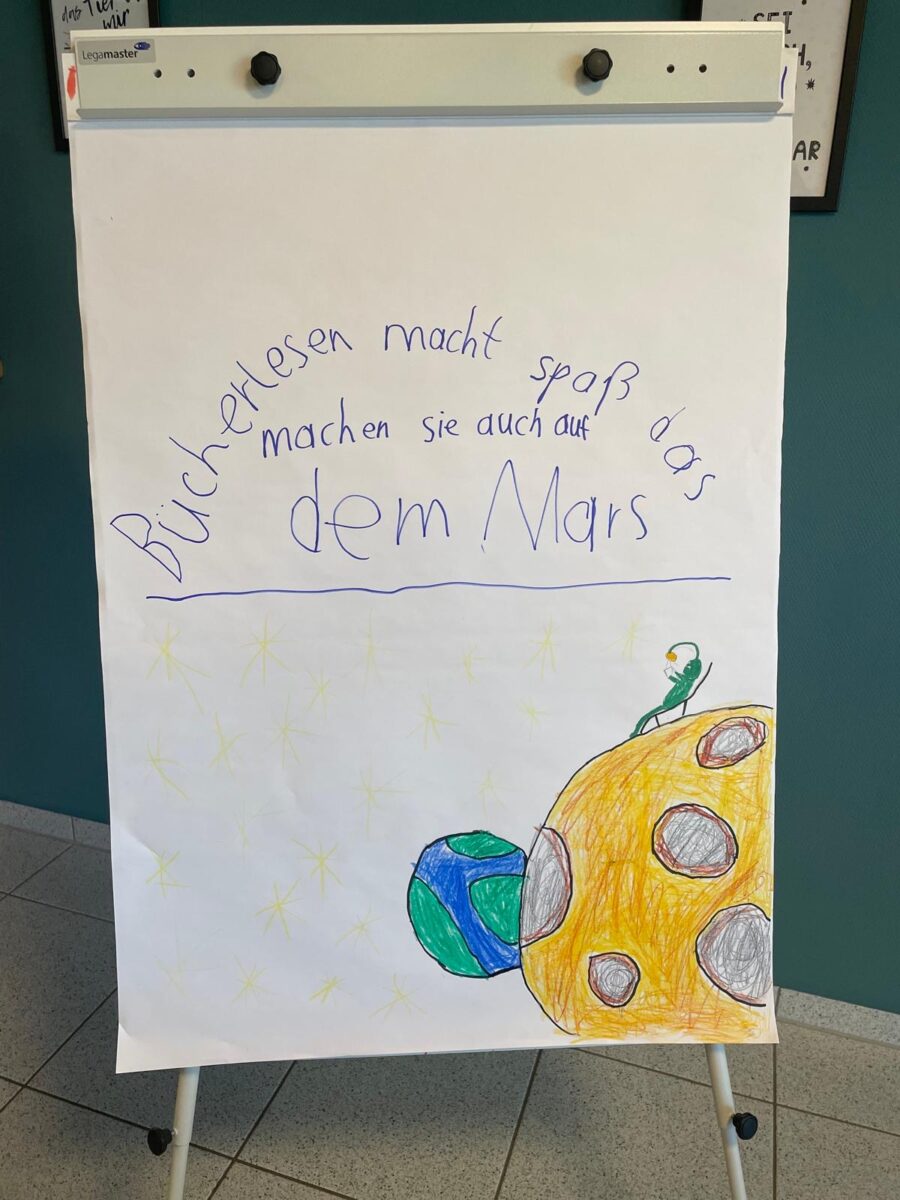 das Tier
mir
SEI
H,
AR
Legamaster
Bücherlesen macht spaß das
machen sie auch auf
dem Mars